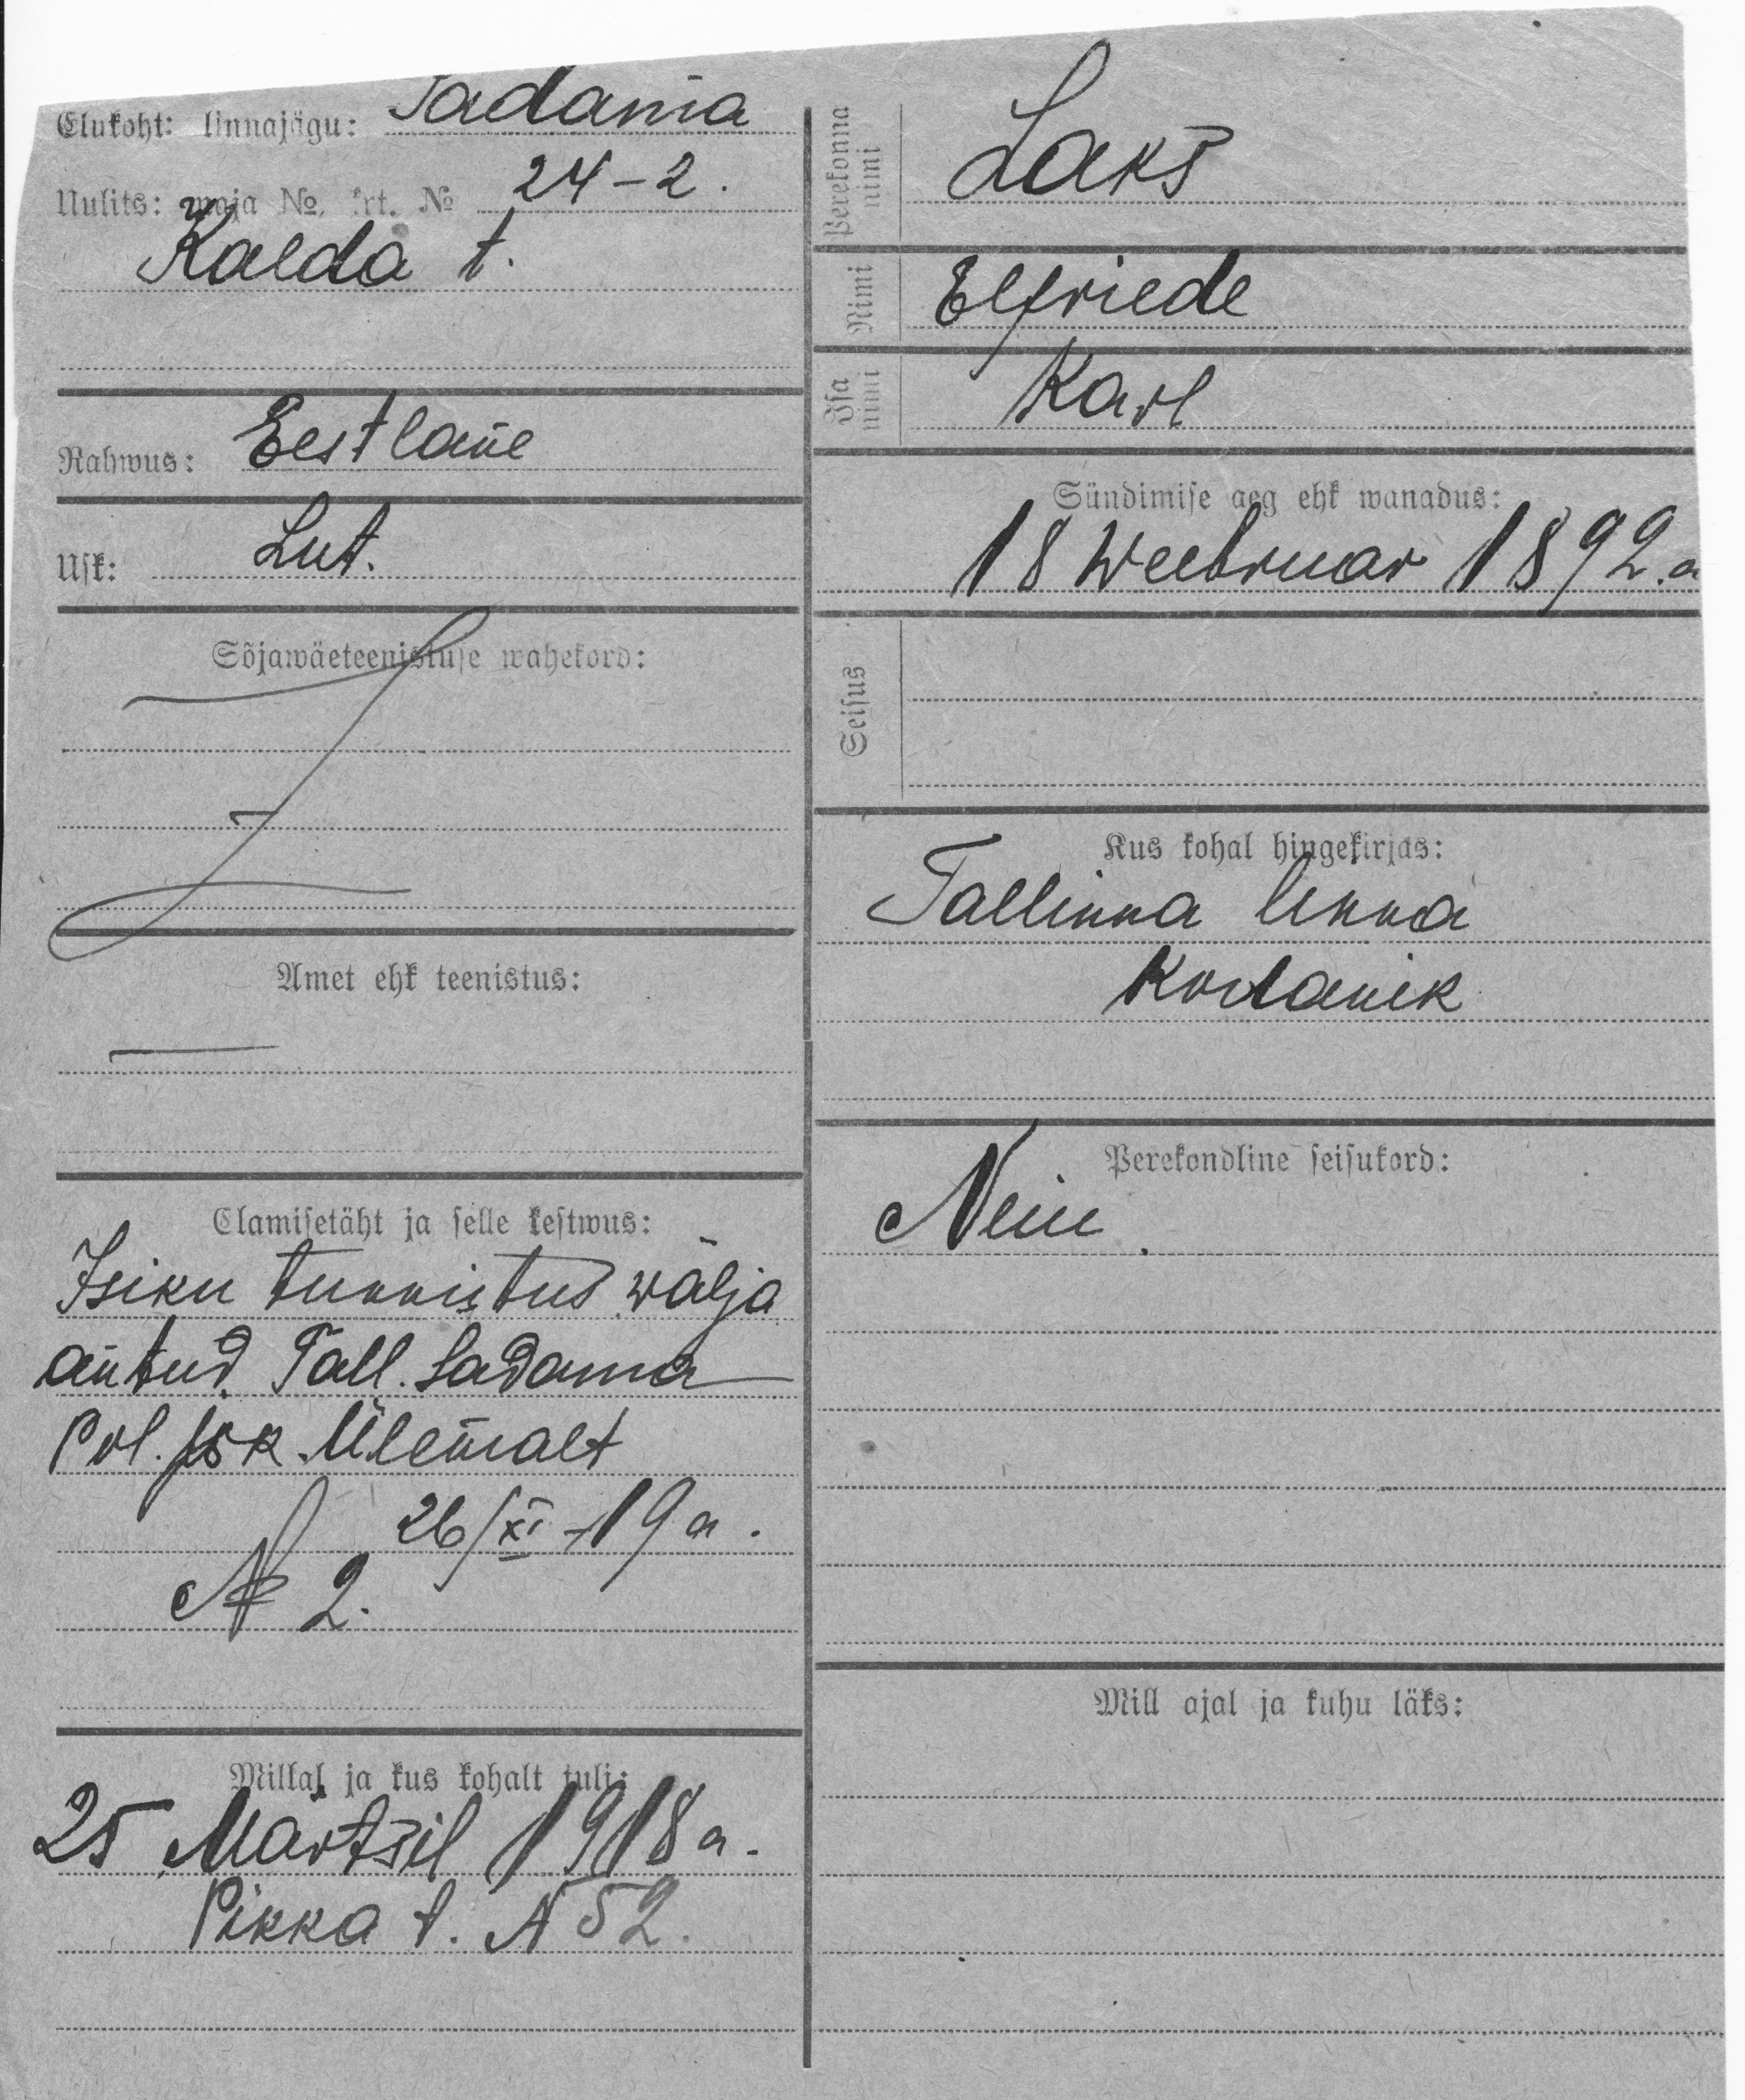 Elukoht: linnajägu: Sadama
Uulits: maja №, krt. № 24-2.
Kalda t.
Rahwus: Eestlane
Usk: Lut.
Sõjawäeteenistuse wahekord:
Amet ehk teenistus:
Elamisetäht ja selle kestwus:
Isiku tunnistus wälja
antud Tall. Sadama
Pol. jsk. Ülemalt
26/XI-19 a.
№ 2.
Millal ja kus kohalt tuli:
25 Märtsil 1918 a.
Pikka t. № 52.
Perekonna nimi
Laks
Nimi
Elfriede
Isa nimi
Karl
Sündimise aeg ehk wanadus:
18 Weebruar 1892.a
Seisus
Kus kohal hingekirjas:
Tallinna linna
Kodanik
Perekondline seisukord:
Neiu.
Mill ajal ja kuhu läks: